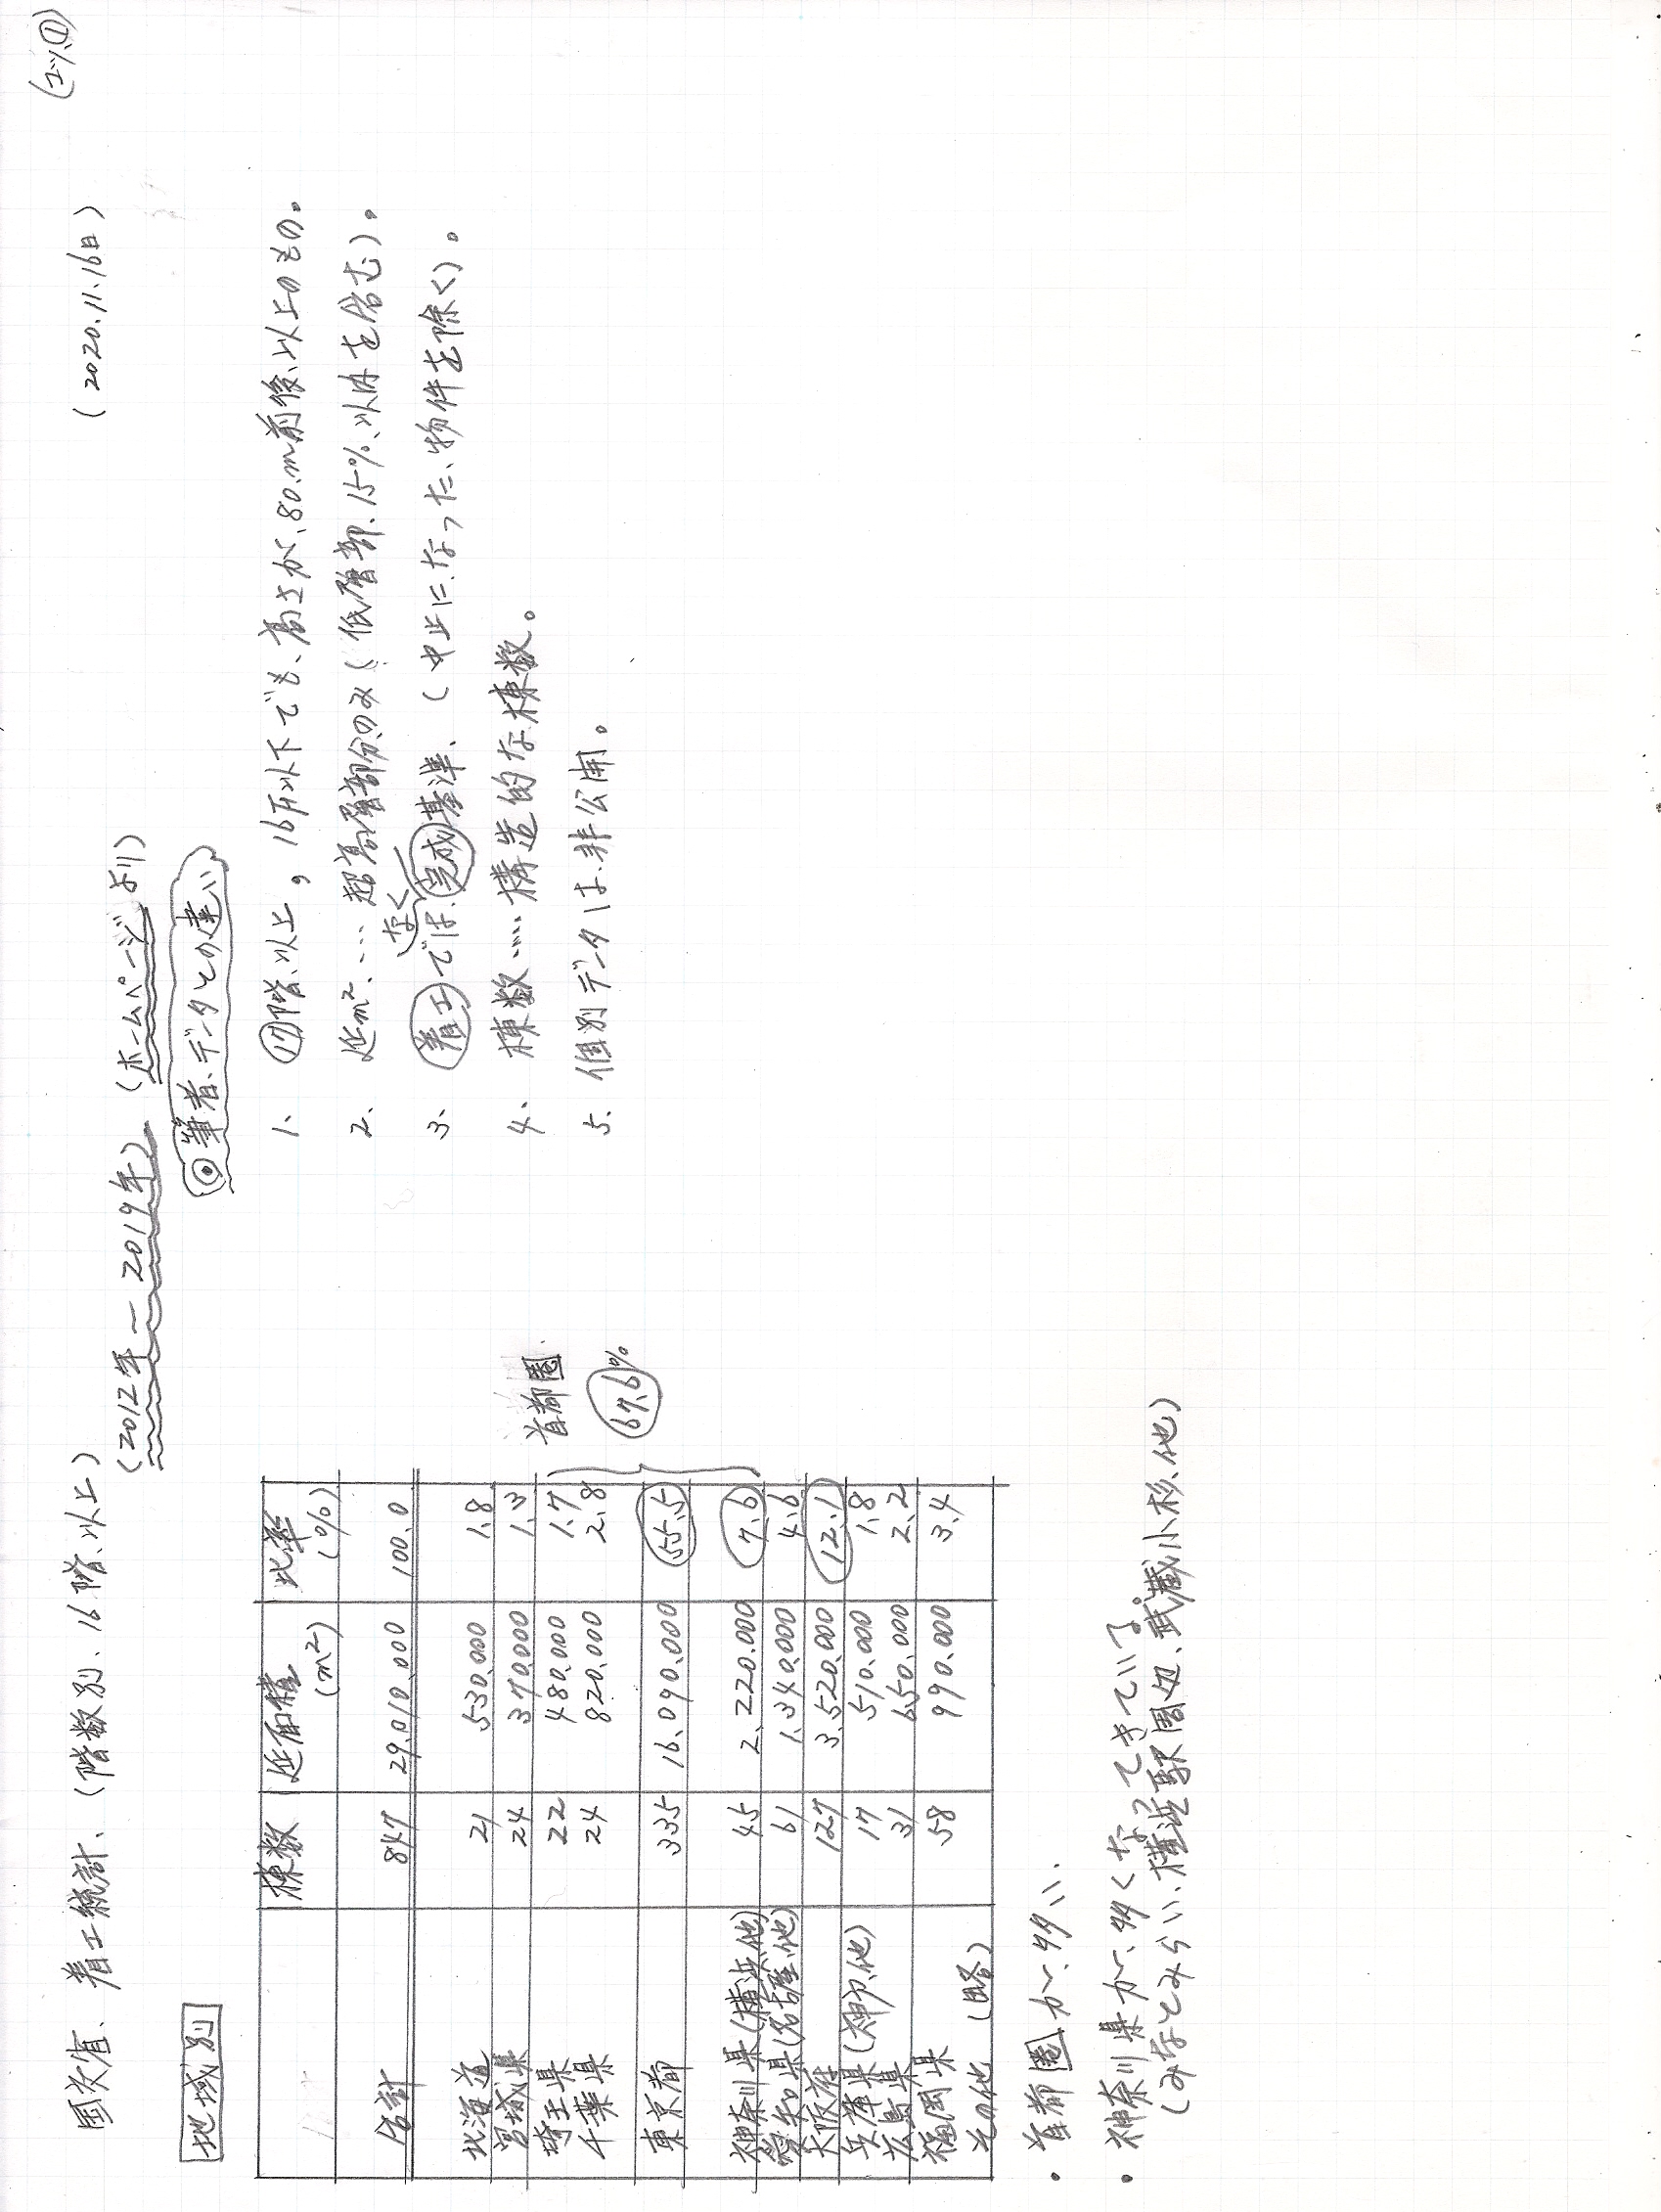 (エツ、①)
国交省、着工統計、(階数別、16階、以上)
(2020.11.16日)
(2012年~2019年)、(ホームページより)
地域別
◎筆者、データとの違い
棟数 延面積(m²) 比率(%)
合計 847 29,010,000 100.0
北海道 21 530,000 1.8
宮城県 24 370,000 1.3
埼玉県 22 480,000 1.7
千葉県 24 820,000 2.8
東京都 335 16,090,000 55.5
神奈川県(横浜、他) 45 2,220,000 7.6
愛知県(名古屋、他) 61 1,340,000 4.6
大阪府 127 3,520,000 12.1
兵庫県(神戸、他) 17 510,000 1.8
広島県 31 650,000 2.2
福岡県 58 990,000 3.4
その他 (略)
首都圏
67.6%
1、⑰階、以上，16F以下でも、高さが、80m前後、以上のもの。
2、延m²、…超高層部分のみ(低層部、15%、以内を含む)。
3、着工ではなく、完成基準、(中止になった、物件を除く)。
4、棟数……構造的な棟数。
5、個別データは、非公開。
・首都圏が、多い、
・神奈川県が、多くなってきている。
(みなとみらい、横浜駅周辺、武蔵小杉、他)